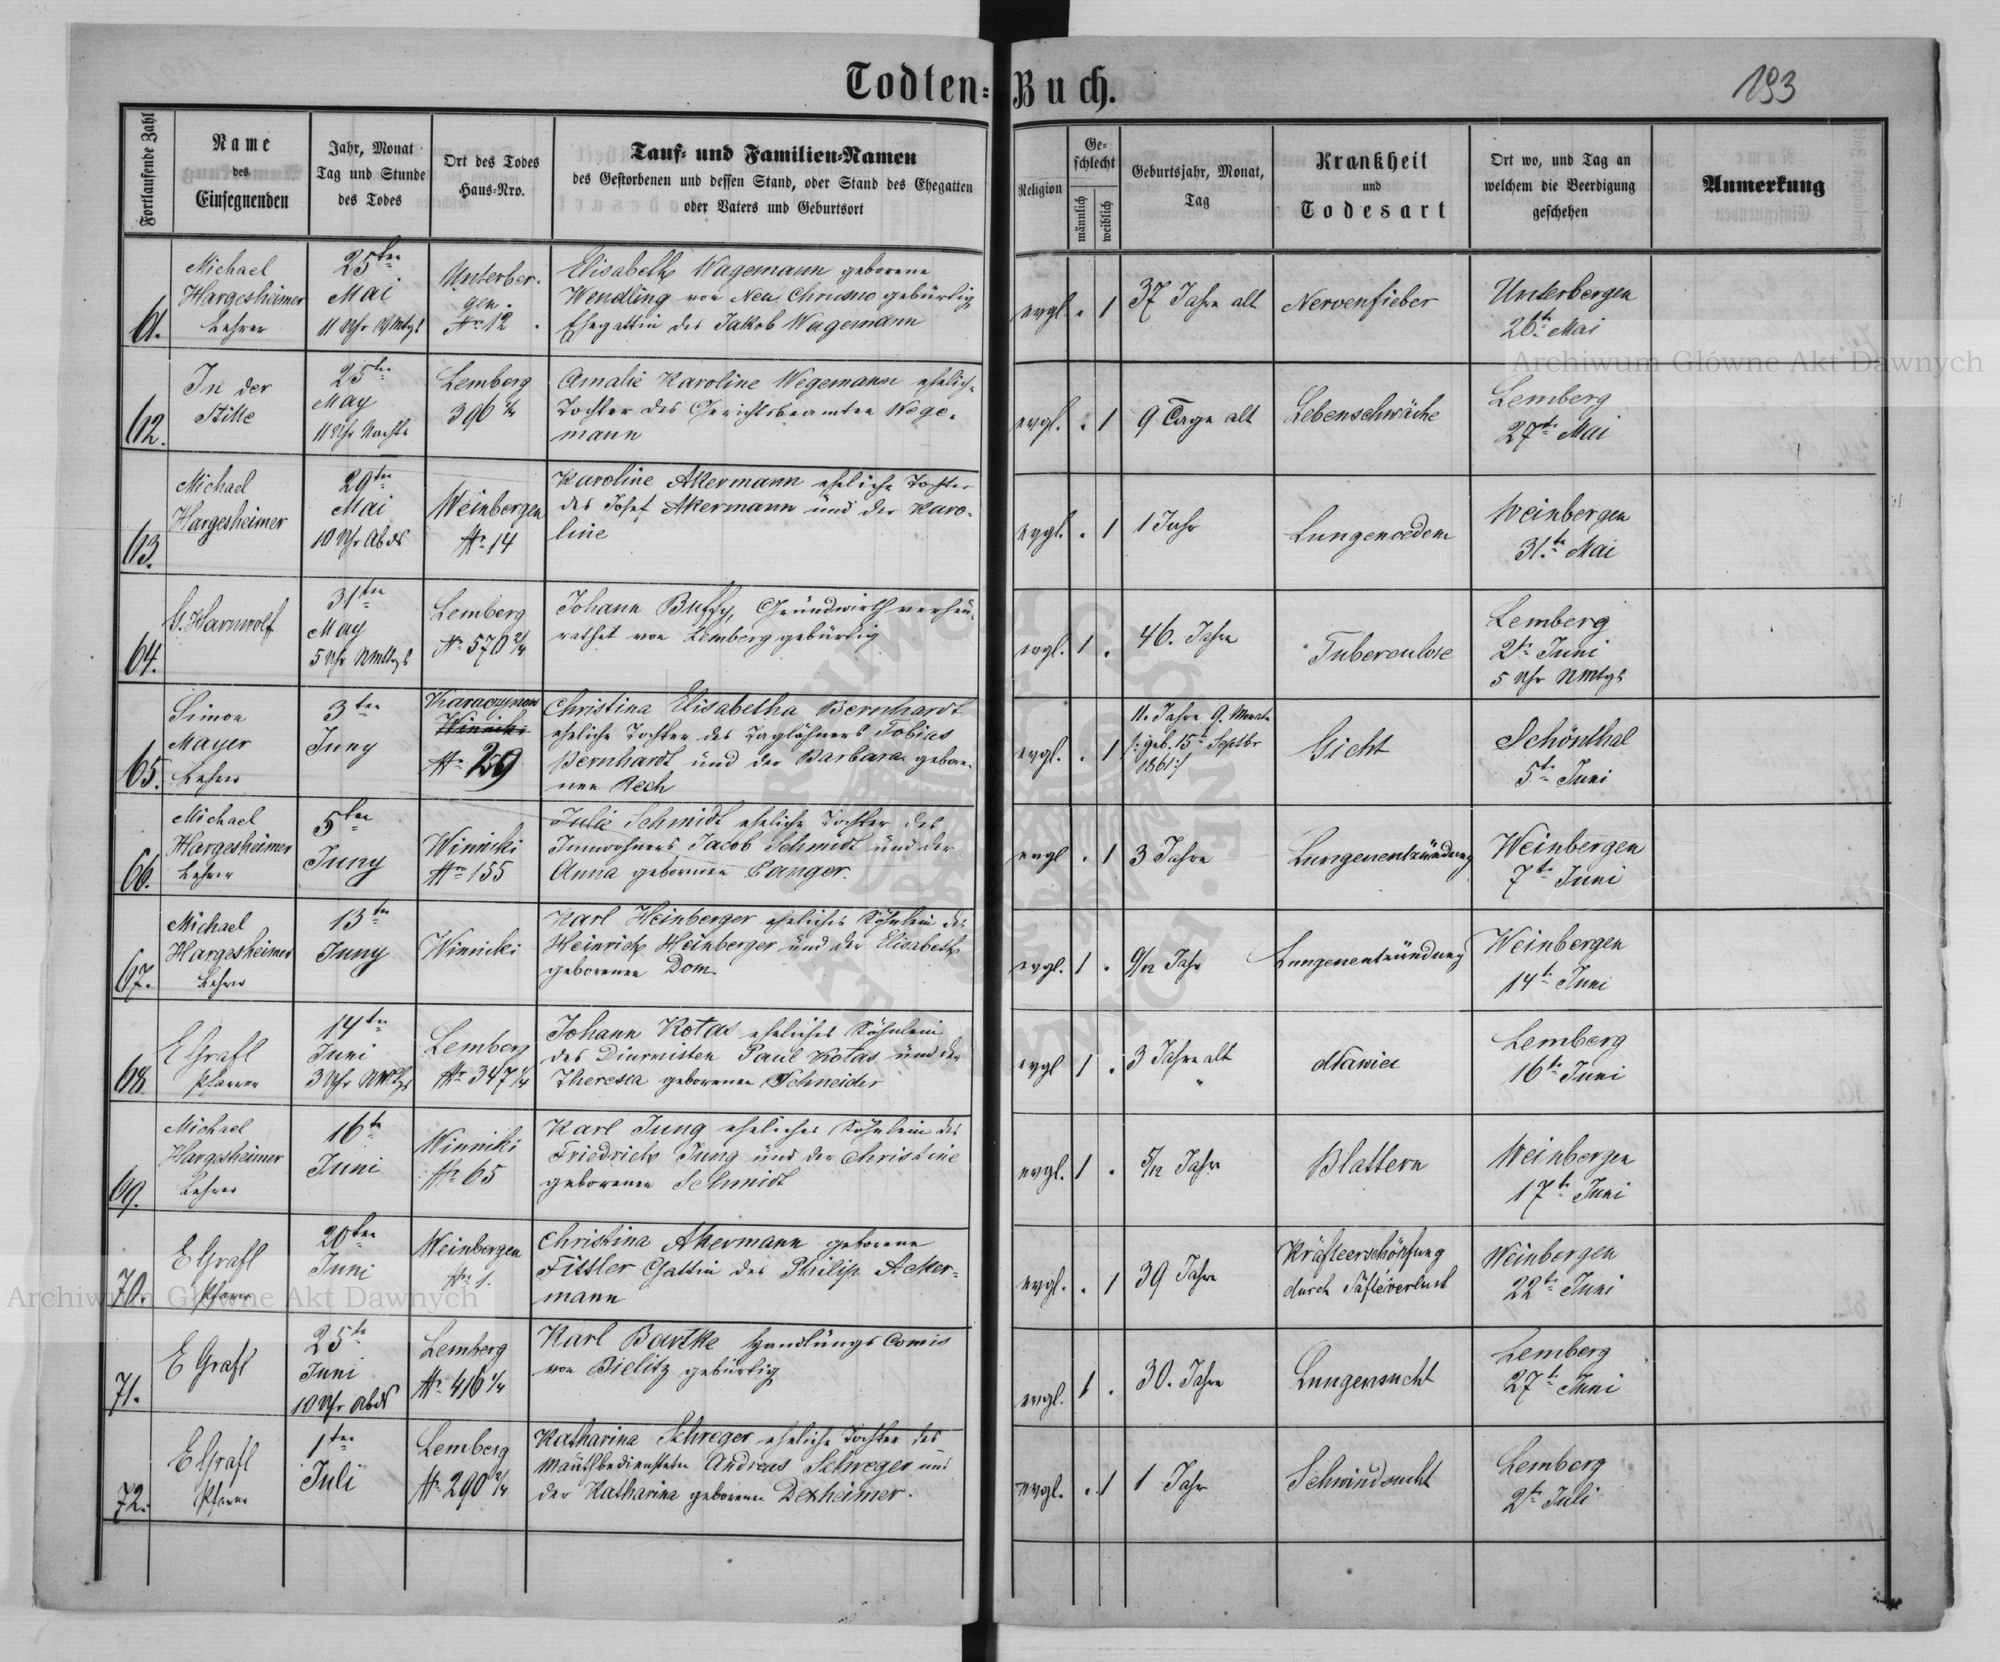 Todten-Buch.
193
Fortlaufende Zahl
Name
des
Einsegnenden
Jahr, Monat
Tag und Stunde
des Todes
Ort des Todes
Haus-Nro.
Tauf- und Familien-Namen
des Gestorbenen und dessen Stand, oder Stand des Ehegatten
oder Vaters und Geburtsort
Religion
Ge-
schlecht
männlich
weiblich
Geburtsjahr, Monat,
Tag
Krankheit
und
Todesart
Ort wo, und Tag an
welchem die Beerdigung
geschehen
Anmerkung
61.
Michael
Hargesheimer
Lehrer
25ten
Mai
11 Uhr Vmtgs
Unterber-
gen.
Nr. 12
Elisabeth Wagemann geborene
Wendling von Neu Chrusno gebürtig
Ehegattin des Jakob Wagemann
evgl.
. 1
37 Jahre alt
Nervenfieber
Unterbergen
26t. Mai
62.
In der
Stille
25ten
May
11 Uhr Nachts
Lemberg
396 2/4
Amalie Karoline Wegemann ehelich-
Tochter des Gerichtsbeamten Wege-
mann
evgl.
. 1
9 Tage alt
Lebenschwäche
Lemberg
27t. Mai
63.
Michael
Hargesheimer
29ten
Mai
10 Uhr Abds
Weinbergen
Nr. 14
Karoline Akermann eheliche Tochter
des Josef Akermann und der Karo-
line
evgl.
. 1
1 Jahr
Lungenoedem
Weinbergen
31.t. Mai
64.
G. Harnwolf
31ten
May
5 Uhr Nmttgs
Lemberg
Nr. 570 2/4
Johann Buffy, Grundwirth verheu-
rathet von Lemberg gebürtig
evgl.
1 .
46. Jahre
Tuberculose
Lemberg
2t. Juni
5 Uhr Nmtgs
65.
Simon
Mayer
Lehrer
3ten
Juny
Winniki
Nr. 29
Christina Elisabetha Bernhardt
eheliche Tochter des Taglöhners Tobias
Bernhardt und der Barbara gebore-
nen Rech
evgl.
. 1
11. Jahre 9. Monate
/: geb. 15t. Septbr
1861:/
Gicht
Schönthal
5t. Juni
66.
Michael
Hargesheimer
Lehrer
5ten
Juny
Winniki
Nr. 155
Julie Schmidt eheliche Tochter des
Innwohners Jacob Schmidt und der
Anna gebornen Langer.
evgl
. 1
3 Jahre
Lungenentzündung
Weinbergen
7t. Juni
67.
Michael
Hargesheimer
Lehrer
13ten
Juny
Winniki
Karl Heinberger eheliches Söhnlein des
Heinrich Heinberger und der Elisabeth
geborenen Dom.
evgl.
1 .
9/12 Jahr
Lungenentzündung
Weinbergen
14t. Juni
68.
E Grafl
Pfarrer
14ten
Juni
3 Uhr Nmttgs
Lemberg
Nr. 347 1/4
Johann Kotas eheliches Söhnlein
des Diurnisten Paul Kotas und der
Theresia geborenen Schneider
evgl
1 .
3 Jahre alt
Lemberg
16t. Juni
69.
Michael
Hargesheimer
Lehrer
16t.
Juni
Winniki
Nr. 65
Karl Jung eheliches Söhnlein des
Friedrich Jung und der Christine
geborenen Schmidt
evgl.
1 .
5/12 Jahr
Blattern
Weinbergen
17t. Juni
70.
E Grafl
Pfarrer
20ten
Juni
Weinbergen
Nr. 1.
Christina Akermann geborene
Fittler Gattin des Philip Acker-
mann
evgl.
. 1
39 Jahre
Kräfteerschöpfung
durch Säfteverlust
Weinbergen
22t. Juni
71.
E Grafl
25t.
Juni
10 Uhr Abds
Lemberg
Nr. 416 1/4
Karl Bartke Handlungs Comis
von Bielitz gebürtig
evgl.
1 .
30. Jahre
Lungensucht
Lemberg
27t. Juni
72.
E Grafl
Pfarrer
1ten
Juli
Lemberg
Nr. 290 2/4
Katharina Schreger eheliche Tochter des
Mauthbediensteten Andreas Schreger und
der Katharina geborenen Dexheimer.
evgl.
. 1
1 Jahr
Schwindsucht
Lemberg
2t. Juli
Archiwum Główne Akt Dawnych
Archiwum Główne Akt Dawnych